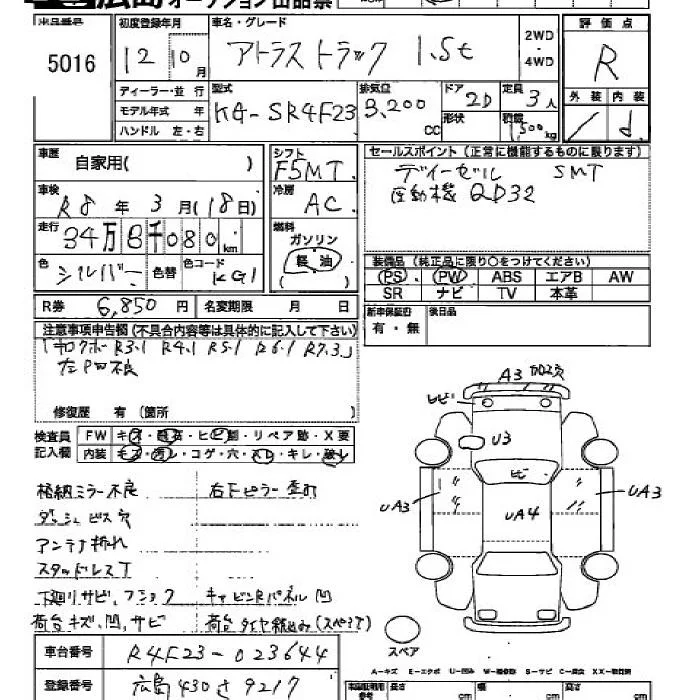 広島 オークション出品票
出品番号 初度登録年月 車名・グレード 2WD・4WD 評価点
5016 12年10月 アトラストラック 1.5t R
ディーラー・並行 型式 排気量 ドア 定員 外装 内装
モデル年式 年 KG-SR4F23 3,200cc 2D 3人
ハンドル 左・右 形状 積載 1,500kg / d
車歴 自家用( ) シフト F5MT
セールスポイント(正常に機能するものに限ります)
ディーゼル 5MT
原動機 QD32
車検 R8年3月(18日) 冷房 AC
走行 34万8千080km 燃料 ガソリン 軽油 ( )
色 シルバー 色替 色コード KG1
装備品(純正品に限り○をつけてください)
PS PW ABS エアB AW
SR ナビ TV 本革
R券 6,850円 名変期限 月 日
新車保証書 有・無 後日品
注意事項申告欄(不具合内容等は具体的に記入して下さい)
R3.1 R4.1 R5.1 R6.1 R7.3
左PW不良
修復歴 有(箇所 )
検査員記入欄 FW キズ・飛石・ヒビ割・リペア跡・X要
内装 キズ・汚レ・コゲ・穴・スレ・キレ・破レ
格納ミラー不良 右Fピラー歪み
ダッシュビス穴
アンテナ折れ
スタッドレスT
下廻リサビ、フック キャビンRパネル凹
荷台キズ、凹、サビ 荷台タイヤ積込み(スペア)
A3 加ロ穴
ヒビ
U3
ヒビ
UA3
UA4
UA3
スペア
車台番号 R4F23-023644
登録番号 広島 430 さ 9217
A-キズ E-エクボ U-凹み W-補修跡 S-サビ C-腐食 XX-取替済
長さ cm 幅 cm 高さ cm